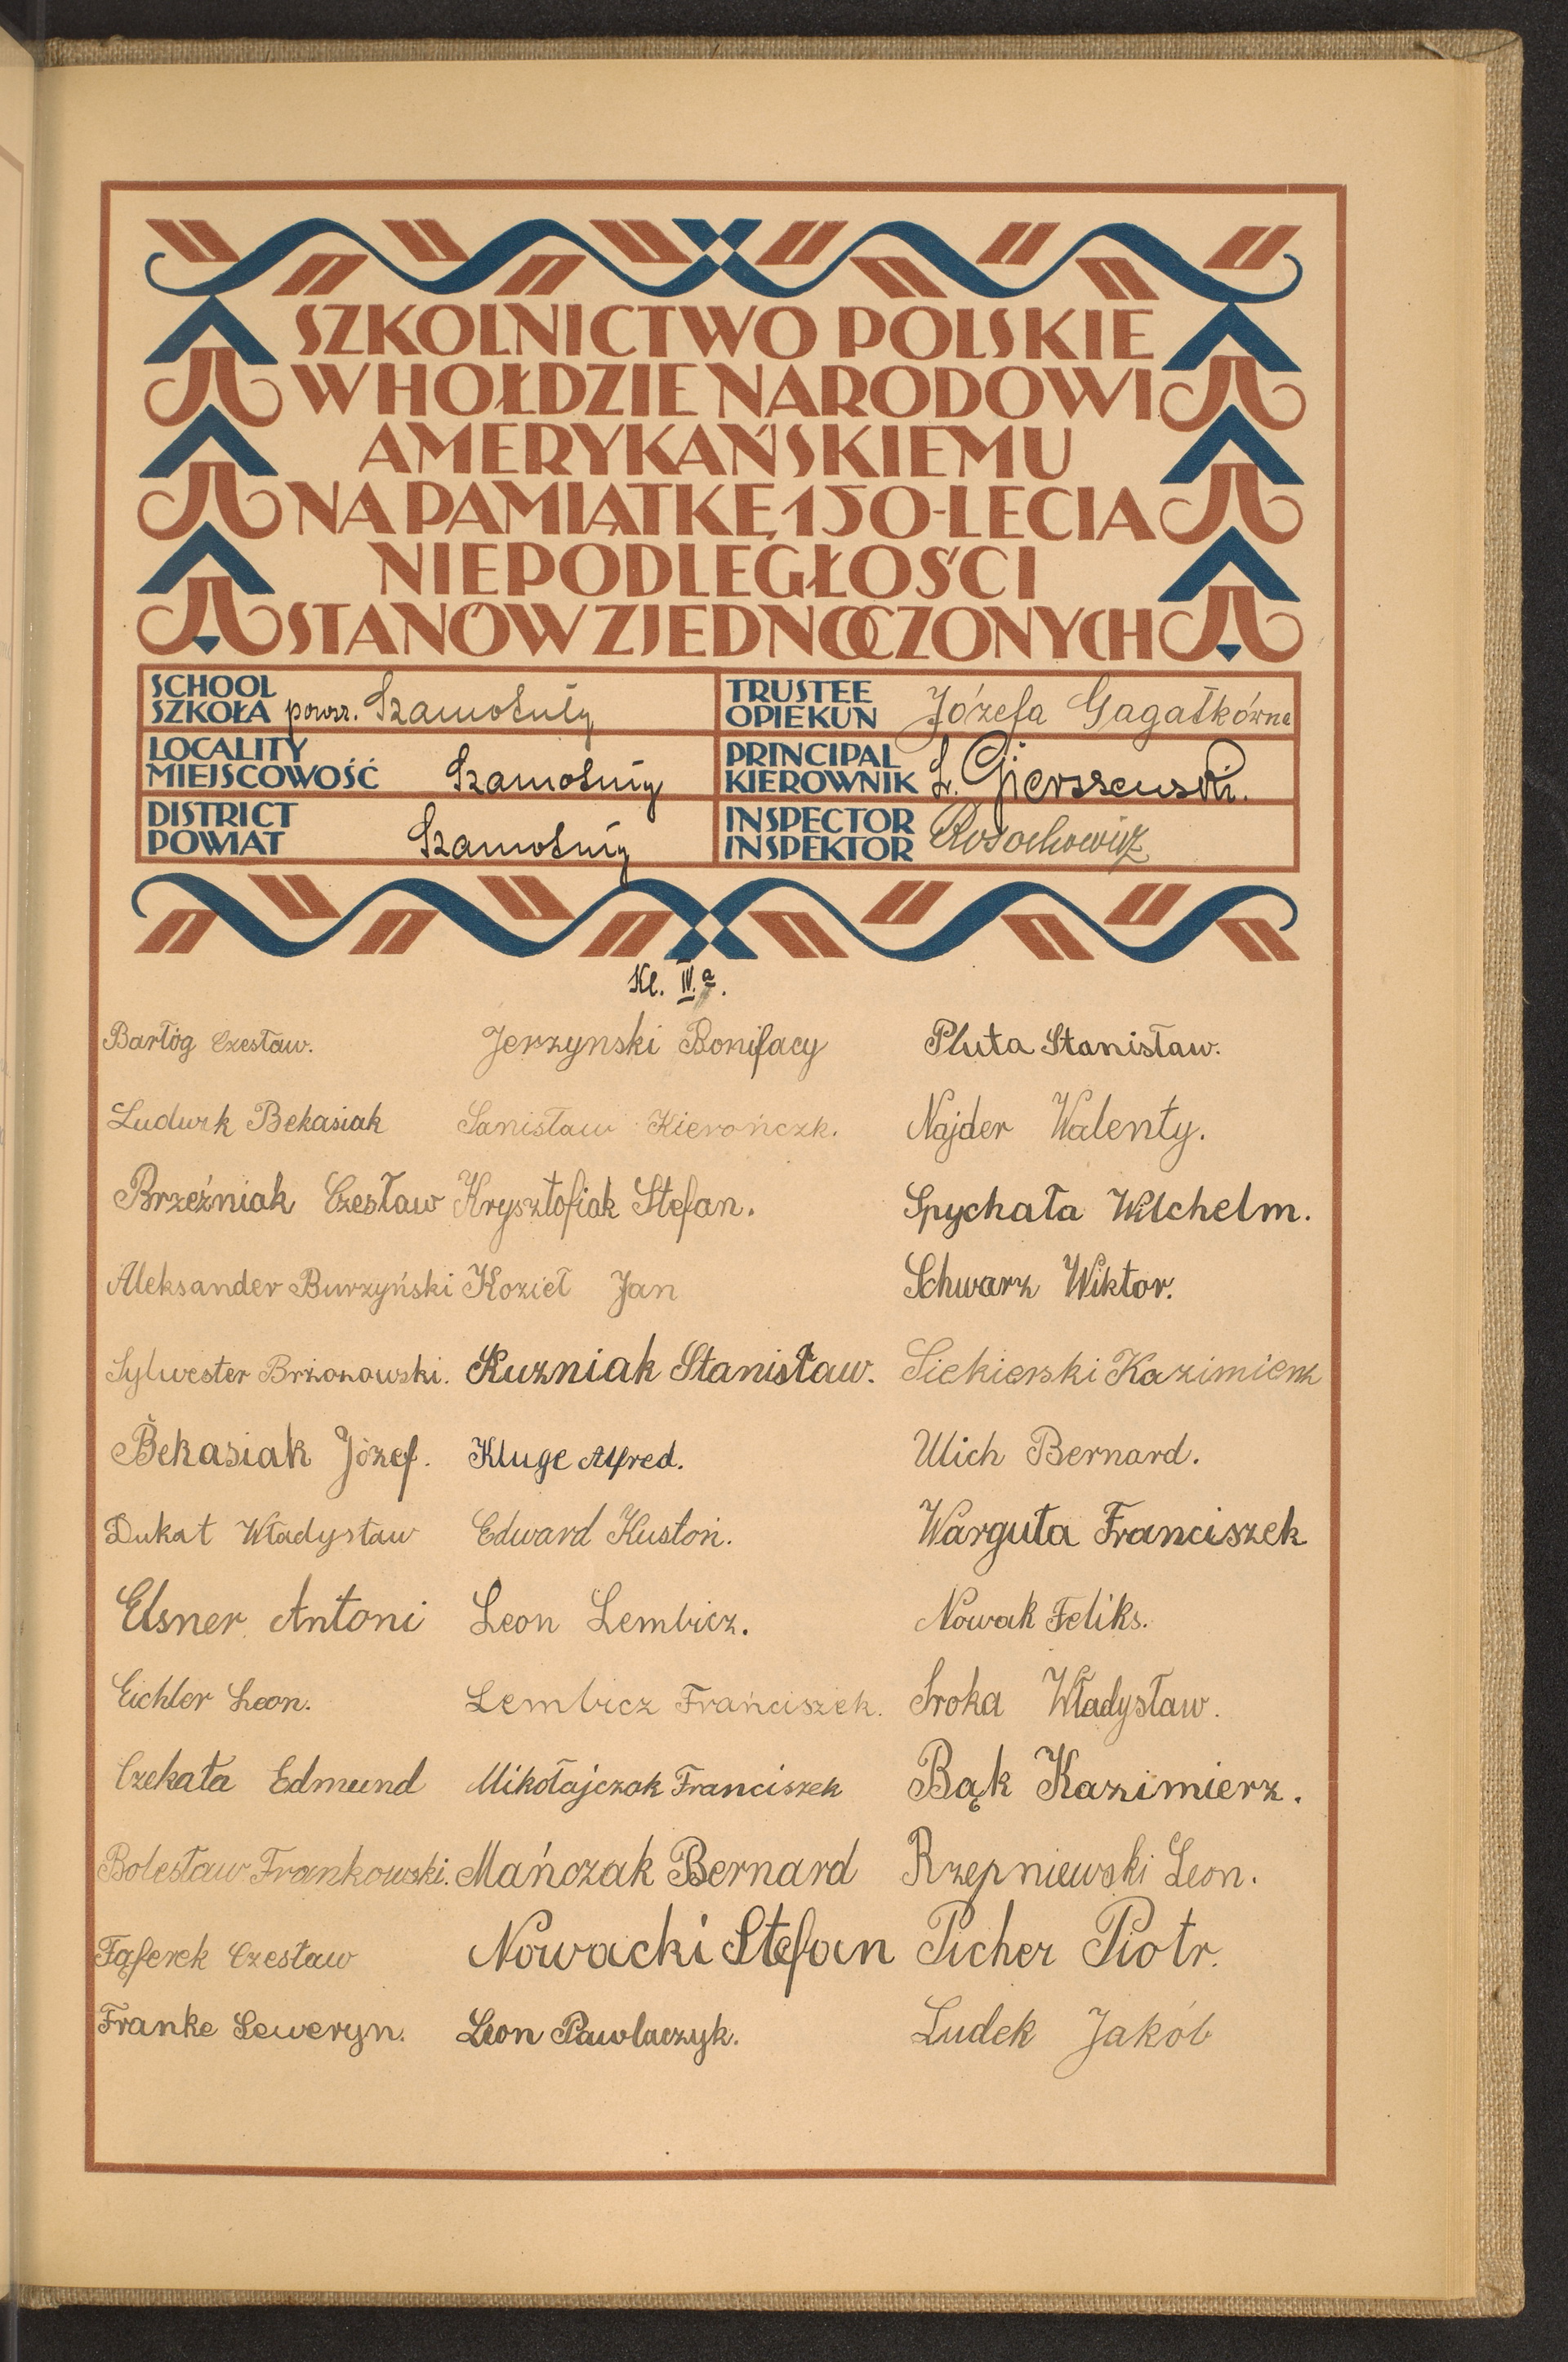 SZKOLNICTWO POLSKIE
W HOŁDZIE NARODOWI
AMERYKAŃSKIEMU
NA PAMIĄTKĘ 150-LECIA
NIEPODLEGŁOŚCI
STANÓW ZJEDNOCZONYCH
SCHOOL
SZKOŁA powsz. Szamotuły
LOCALITY
MIEJSCOWOŚĆ Szamotuły
DISTRICT
POWIAT Szamotuły
TRUSTEE
OPIEKUN Józefa Gagatkówna
PRINCIPAL
KIEROWNIK L. Gierszewski.
INSPECTOR
INSPEKTOR Rosochowicz
Kl. IV.a.
Bartóg Czesław.
Ludwik Bekasiak
Brzeźniak Czesław
Aleksander Burzyński
Sylwester Brzozowski.
Bekasiak Józef.
Dukat Władysław
Elsner Antoni
Eichler Leon.
Czekała Edmund
Bolesław Frankowski.
Fąferek Czesław
Franke Seweryn.
Jerzynski Bonifacy
Sanisław Kierończk.
Krysztofiak Stefan.
Kozieł Jan
Kuzniak Stanisław.
Kluge Alfred.
Edward Kustoń.
Leon Lembicz.
Lembicz Frańciszek.
Mikołajczak Franciszek
Mańczak Bernard
Nowacki Stefan
Leon Pawlaczyk.
Pluta Stanisław.
Najder Walenty.
Spychała Wilchelm.
Schwarz Wiktor.
Siekierski Kazimierz
Ulich Bernard.
Warguła Franciszek
Nowak Feliks.
Sroka Władysław.
Bąk Kazimierz.
Rzepniewski Leon.
Picher Piotr.
Ludek Jakób